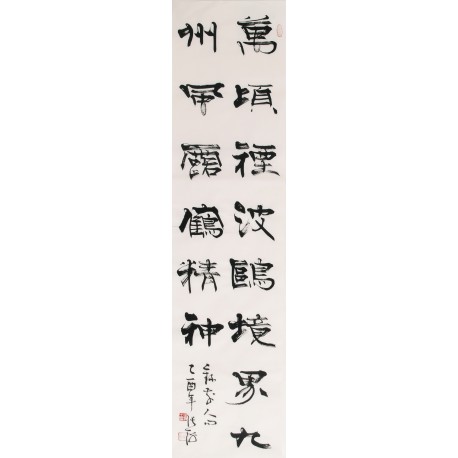 萬頃煙波鷗境界九
州風露鶴精神
乙酉年